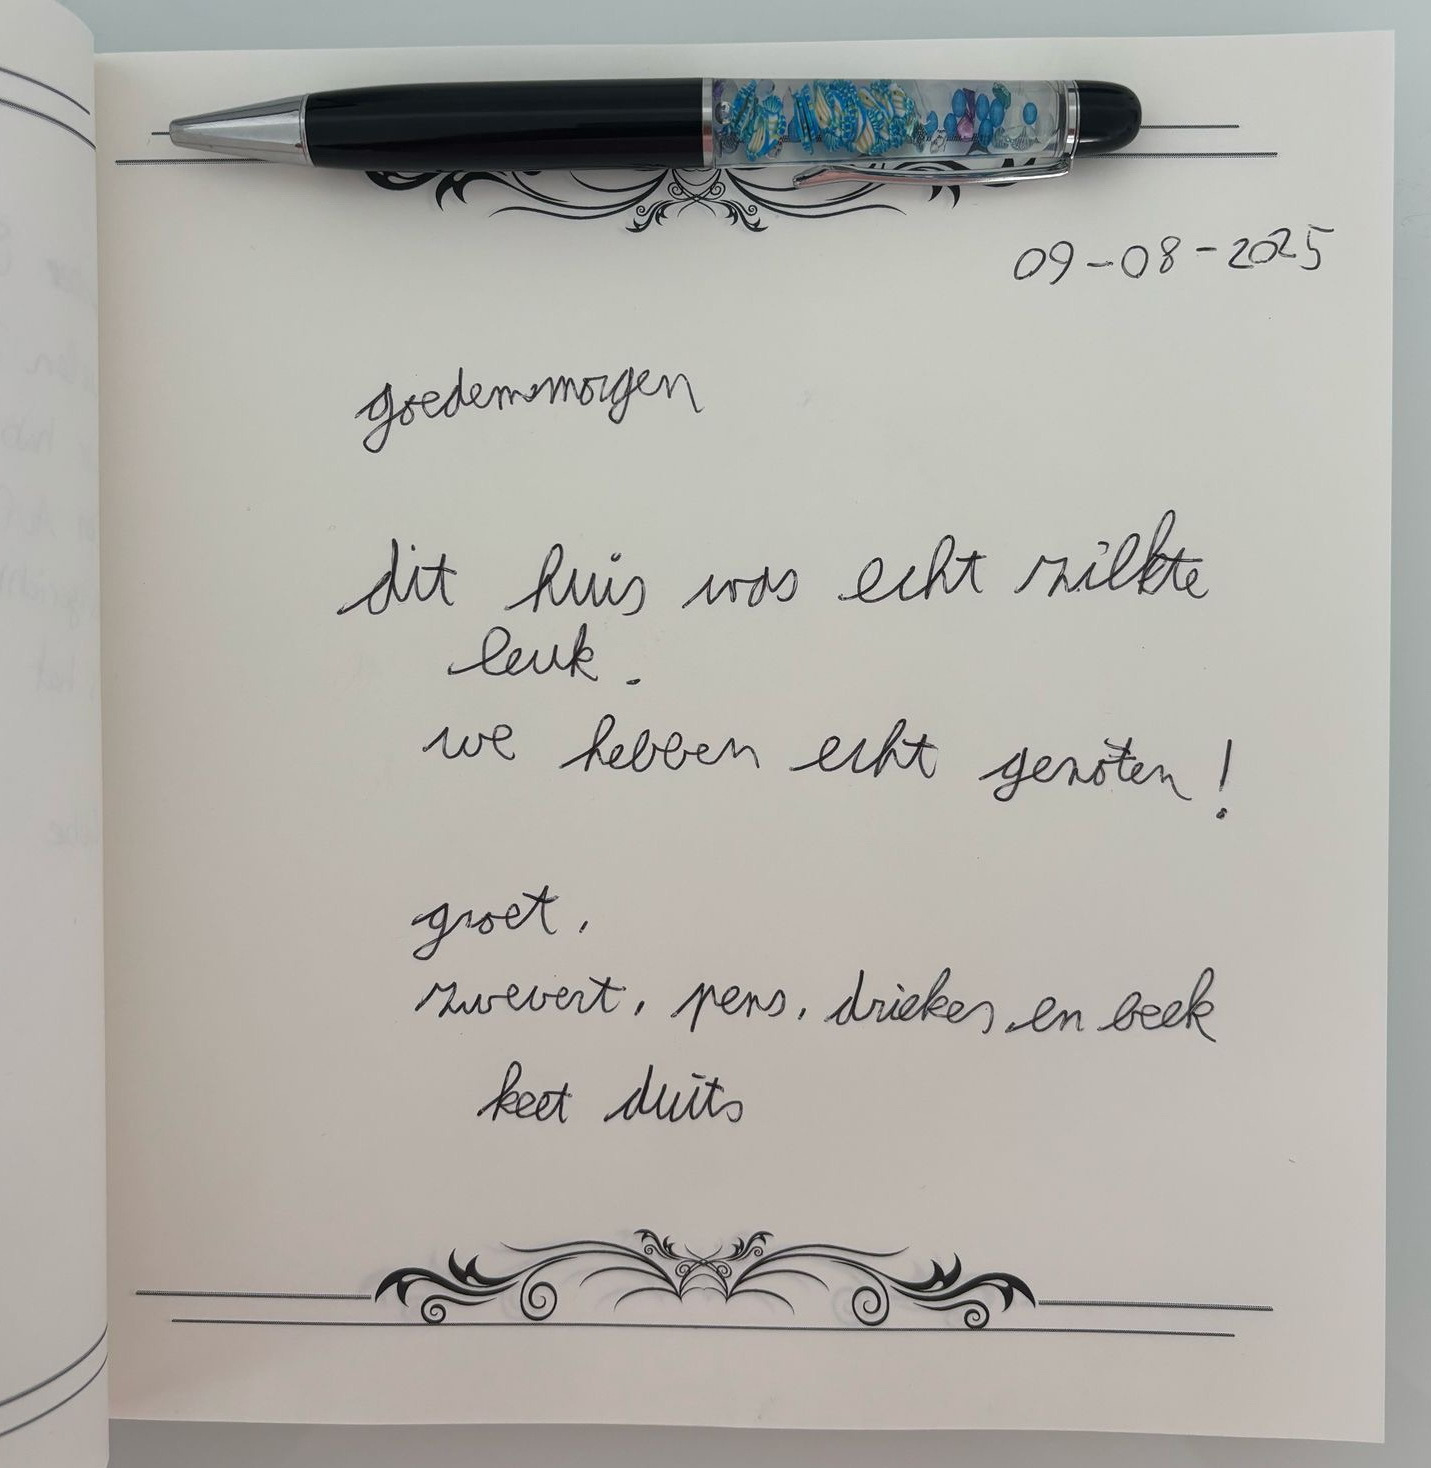 09-08-2025
goedemsmorgen
dit huis was echt zilkte
leuk.
we hebben echt genoten!
groet,
zwevert, pens, driekes, en beek
keet duits